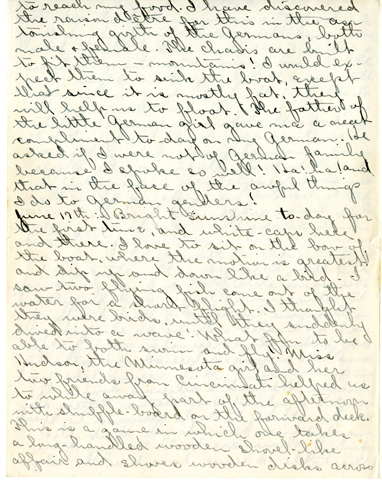 to reach my food. I have discovered
the raison d'etre for this in the as-
tonishing girth of the Germans, both
male & female. The chairs are built
to fit them - mountains! I would ex-
pect them to sink the boat, except
that since it is mostly fat, they
will help us to float. The father of
the little German girl gave me a great
compliment to-day on my German; he
asked if I were not of German family
because I spoke so well! Ha! Ha! and
that in the face of the awful things
I do to German genders!
June 17th: Bright sunshine to-day for
the first time, and white-caps here
and there. I love to sit on the bow of
the boat, where the motion is greatest
and dip up and down like a bird. I
saw two flying fish come out of the
water for a short flight. I thought
they were birds, until they suddenly
dived into a wave! What fun to be
able to both swim and fly! Miss
Hudson, the Minnesota girl and her
two friends from Cincinnati helped us
to while away part of the afternoon
with shuffle-board on the forward deck.
This is a game in which one takes
a long-handled wooden shovel-like
affair and shoves wooden disks across